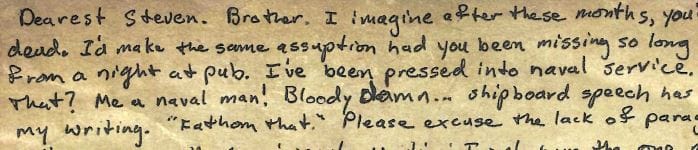 Dearest Steven. Brother. I imagine after these months, you
dead. I'd make the same assuption had you been missing so long
from a night at pub. I've been pressed into naval service.
that? Me a naval man! Bloody Damn... shipboard speech has
my writing. "Fathom that." Please excuse the lack of